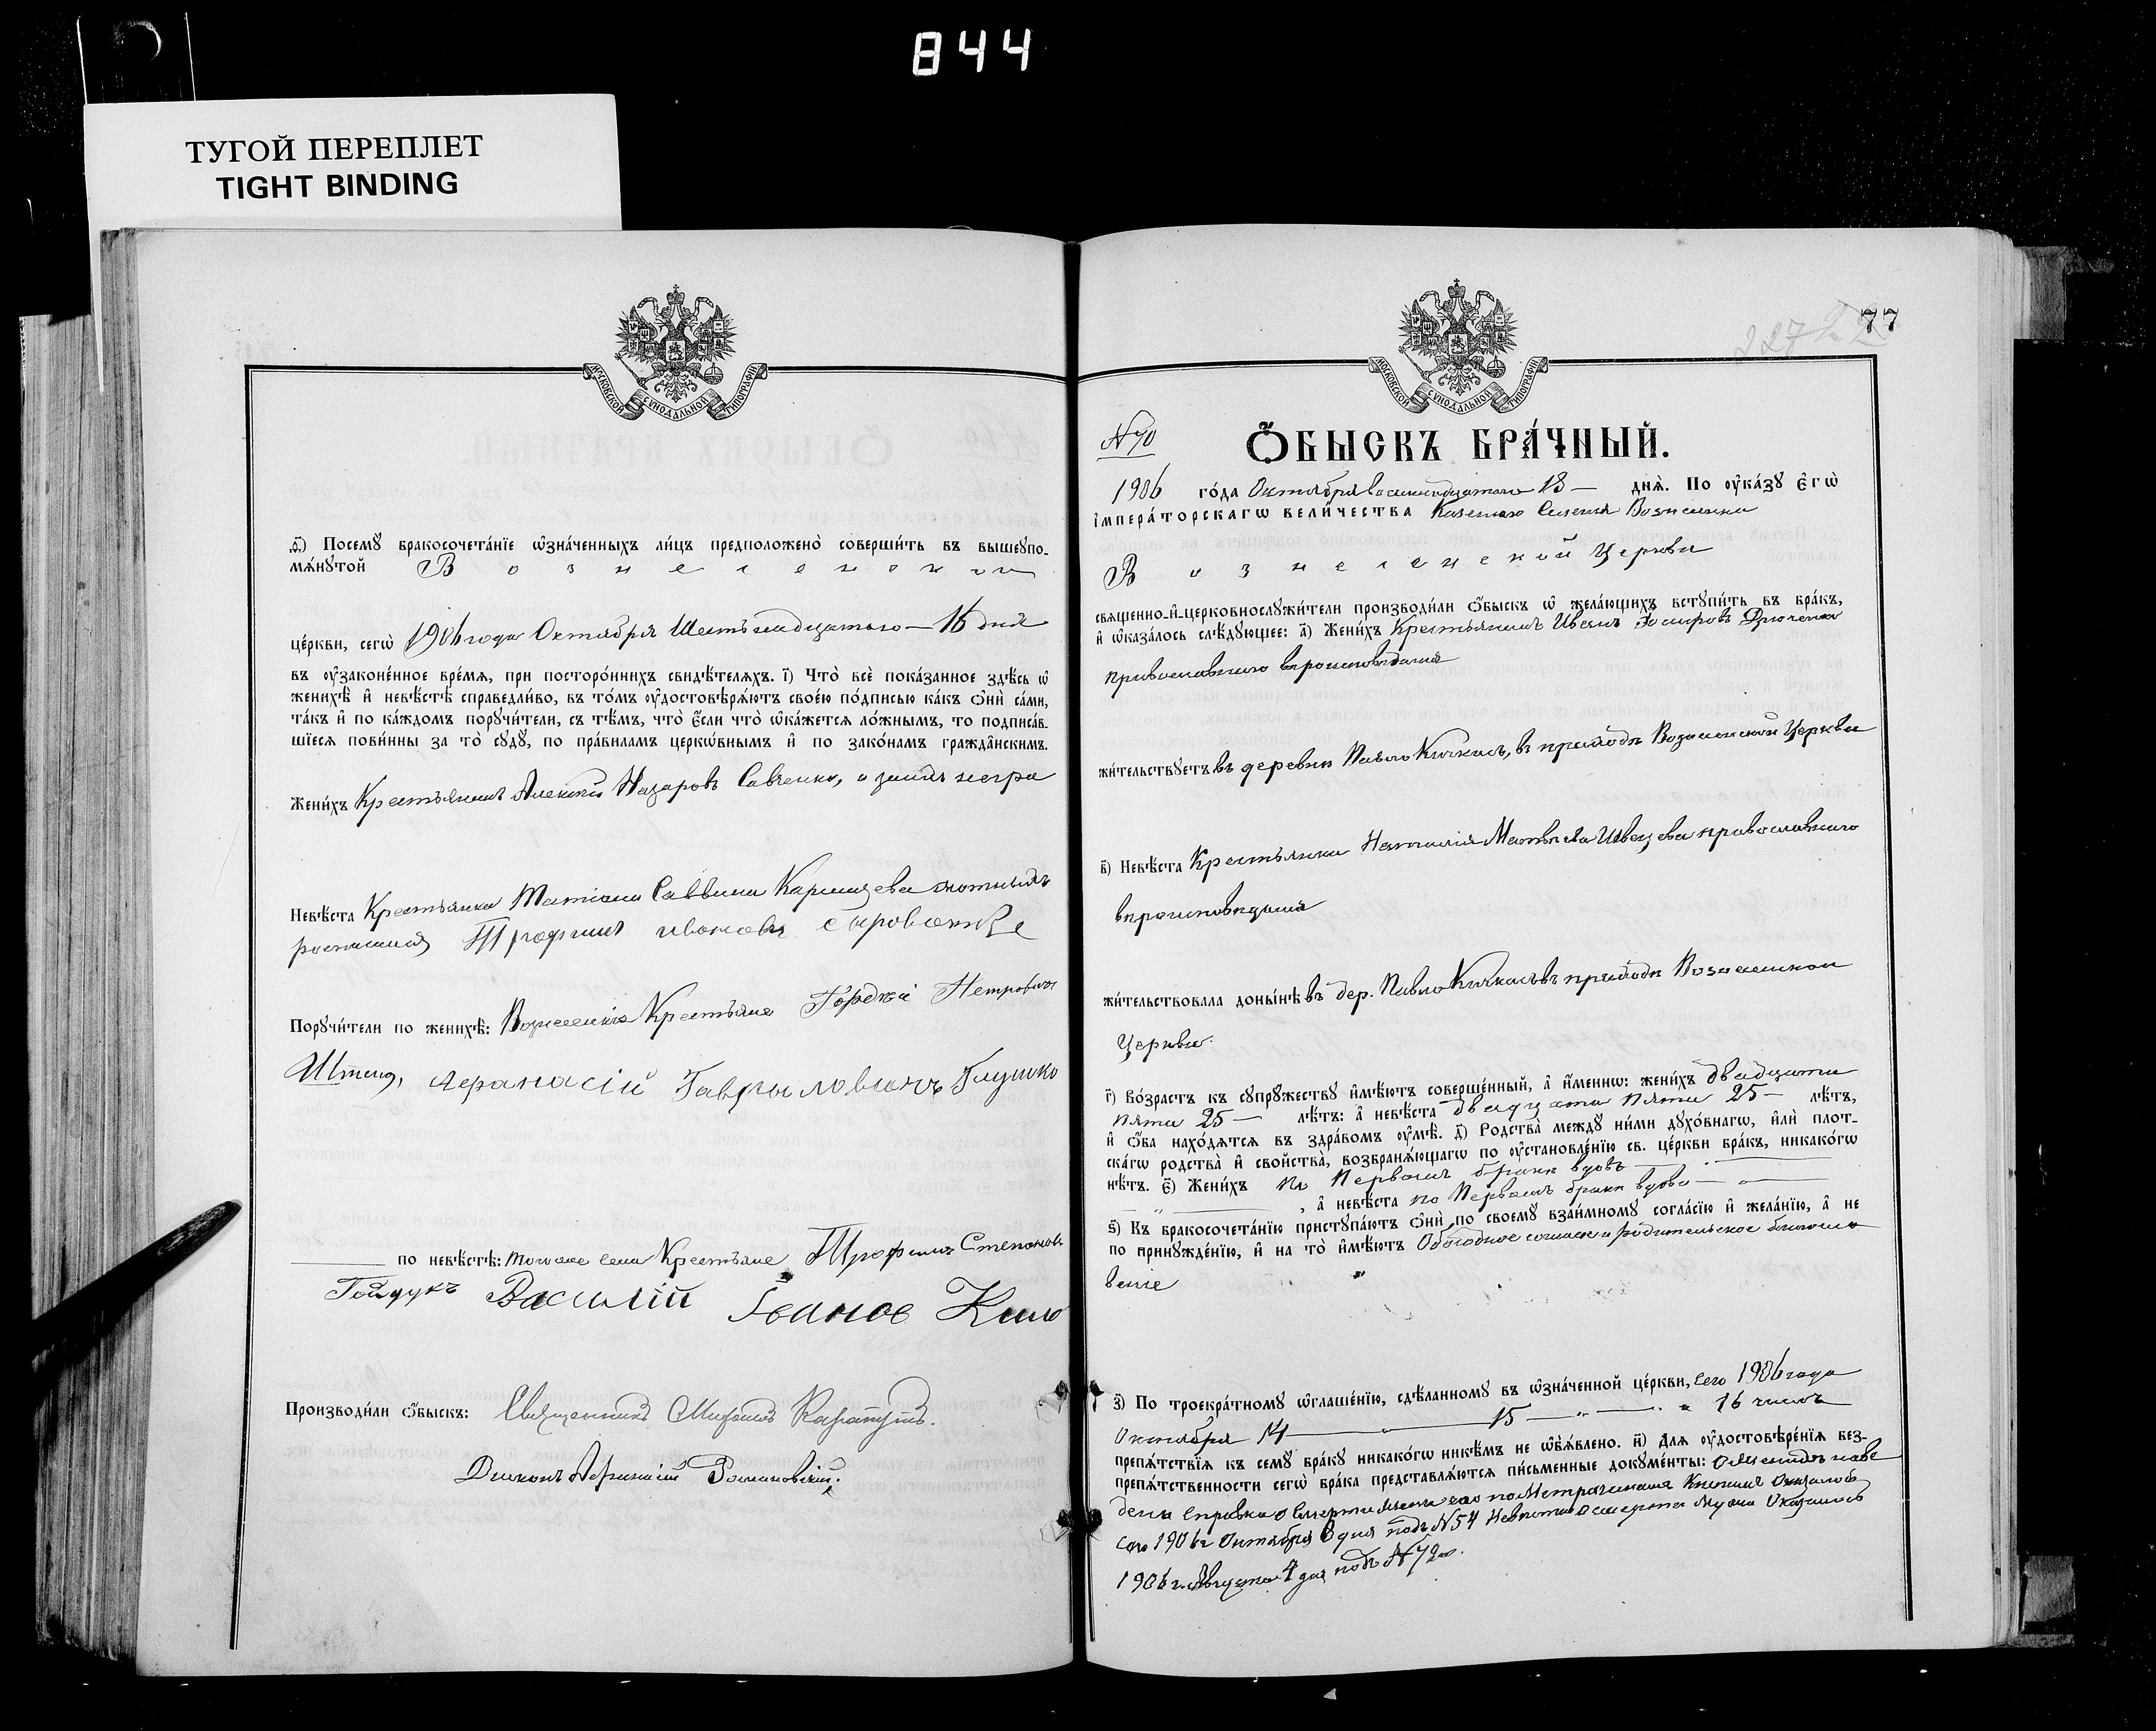 844
ТУГОЙ ПЕРЕПЛЕТ
TIGHT BINDING
МОСКОВСКОЙ СѴНОДАЛЬНОЙ ТИПОГРАФІИ
ѳ҃) Посемꙋ бракосочета́нїе ѡ҆зна́ченныхъ ли́цъ предположено̀ соверши́ть въ вышеꙋпо-
мѧ́нꙋтой Вознесенской
це́ркви, сегѡ̀ 1906 года Октября Шестьнадцатаго — 16 дня
въ ᲂу҆зако́ненное вре́мѧ, при посторо́ннихъ свидѣ́телѧхъ. і҃) Что̀ всѐ пока́занное здѣ́сь ѡ҆
женихѣ̀ и҆ невѣ́стѣ справедли́во, въ то́мъ ᲂу҆достовѣрѧ́ютъ свое́ю по́дписью ка́къ ѻ҆нѝ са́ми,
та́къ и҆ по ка́ждомъ порꙋчи́тели, съ тѣ́мъ, что̀ є҆́сли что̀ ѡ҆ка́жетсѧ ло́жнымъ, то подписа́в-
шїесѧ пови́нны за то̀ сꙋдꙋ̀, по пра́виламъ церкѡ́внымъ и҆ по зако́намъ гражда̑нскимъ.
Жени́хъ Крестьянинъ Алексѣй Назаровъ Савченко, а за него
Невѣ́ста Крестьянка Татіана Саввина
Трофимъ Ивановъ
Порꙋчи́тели по женихѣ̀: Вознесенскіе Крестьяне Гордѣй Петровичъ
Афанасій Гаврыловичъ Глушко
по невѣ́стѣ: того же села Крестьяне Трофимъ Степановъ
Гайдукъ Василій Іванов Кило
Производи́ли ѻ҆́быскъ: Священникъ
Діаконъ Афанасій Романовскій;
77
МОСКОВСКОЙ СѴНОДАЛЬНОЙ ТИПОГРАФІИ
N 70 Ѻ҆́БЫСКЪ БРА́ЧНЫЙ.
1906 го́да Октября восемнадцатаго 18 — днѧ̀. По ᲂу҆ка́зꙋ є҆гѡ̀
і҆мпера́торскагѡ вели́чества Казеннаго Селенія Вознесенки
Вознесенской Церкви
свѧщенно-и҆-церковнослꙋжи́тели производи́ли ѻ҆́быскъ ѡ҆ жела́ющихъ встꙋпи́ть въ бра́къ,
и҆ ѡ҆каза́лось слѣ́дꙋющее: а҃) Жени́хъ Крестьянинъ Иванъ
православнаго вѣроисповѣданія
жи́тельствꙋетъ въ деревнѣ Павло Кичкасъ, въ приходѣ Вознесенской Церкви
в҃) Невѣ́ста Крестьянка Наталія Матвѣева Швецева православнаго
вѣроисповѣданія
жи́тельствовала доны́нѣ въ дер. Павло Кичкасъ въ приходѣ Вознесенской
Церкви.
г҃) Во́зрастъ къ сꙋпрꙋ́жествꙋ и҆мѣ́ютъ соверше́нный, а҆ и҆́менно: жени́хъ двадцати
пяти 25 — лѣ́тъ: а҆ невѣ́ста двадцати пяти 25 — лѣ́тъ,
и҆ ѻ҆́ба нахо́дѧтсѧ въ здра́вомъ ᲂу҆мѣ̀. д҃) Родства̀ междꙋ ни́ми дꙋхо́внагѡ, и҆лѝ плот-
ска́гѡ родства̀ и҆ сво́йства, возбранѧ́ющагѡ по ᲂу҆становле́нїю св. це́ркви бра́къ, никако́гѡ
нѣ́тъ. є҃) Жени́хъ по Первомъ бракѣ вдовъ —
, а҆ невѣ́ста по Первомъ бракѣ вдова —
ѕ҃) Къ бракосочета́нїю пристꙋпа́ютъ ѻ҆нѝ по своемꙋ̀ взаи́мномꙋ согла́сїю и҆ жела́нїю, а҆ не
по принꙋжде́нїю, и҆ на то̀ и҆мѣ́ютъ Обоюдное согласіе и родительское благосло
веніе
з҃) По троекра́тномꙋ ѡ҆глаше́нїю, сдѣ́ланномꙋ въ ѡ҆зна́ченной це́ркви, сего 1906 года
Октября 14 — 15 — 16 числъ
препѧ́тствїѧ къ семꙋ̀ бра́кꙋ никако́гѡ никѣ́мъ не ѡ҆б̾ѧ́влено. и҃) Длѧ ᲂу҆достовѣре́нїѧ без-
препѧ́тственности сегѡ̀ бра́ка представлѧ́ютсѧ пи́сьменные докꙋме́нты: О женихѣ наве
дена справка о смерти жены его по Метрическимъ Книгамъ Оказалось
сего 1906 г. Октября 8 дня подъ N 54 смерть мужа Оказалось
1906 г. Августа 4 дня подъ N 72.